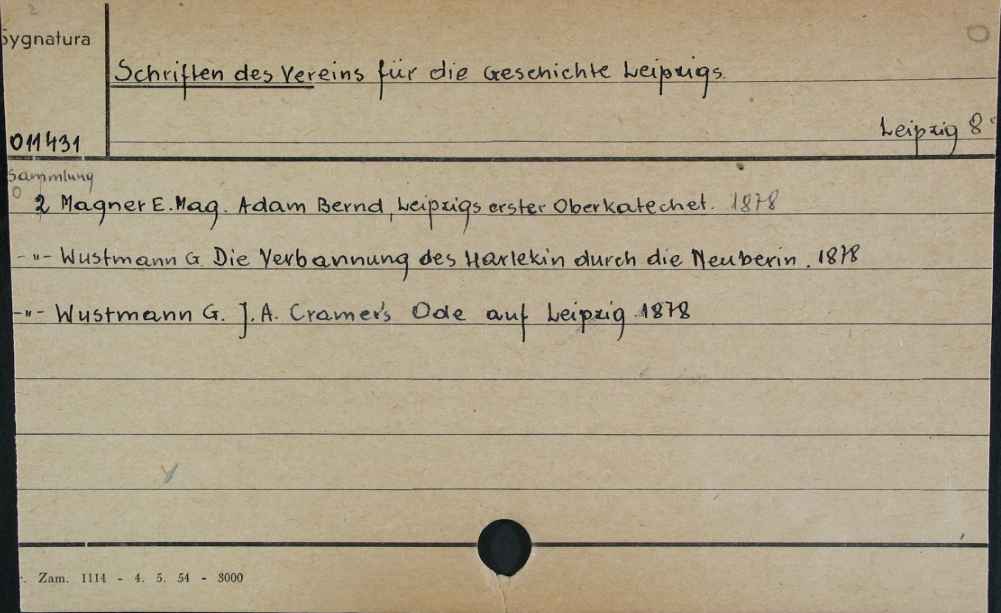 2
Sygnatura
Schriften des Vereins für die Geschichte Leipzigs.
011431
Leipzig 8°
Sammlung
2 Magner E. Mag. Adam Bernd, Leipzigs erster Oberkatechet. 1878
-"- Wustmann G. Die Verbannung des Harlekin durch die Neuberin. 1878
-"- Wustmann G. J. A. Cramer's Ode auf Leipzig. 1878
. Zam. 1114 - 4. 5. 54 - 3000